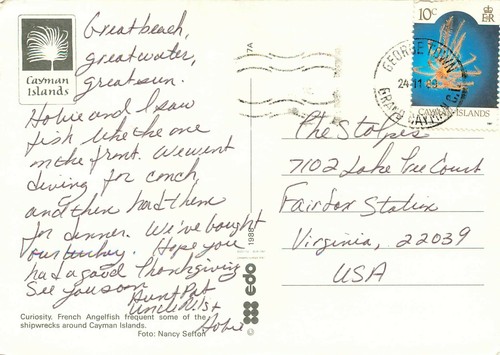 Cayman
Islands
Great beach,
great water,
great sun.
Hobie and I saw
fish like the one
on the front. We went
diving for conch,
and then had them
for dinner. We've bought
our turkey. Hope you
had a good Thanksgiving
See you soon
Aunt Pat
Uncle
Hobie
Curiosity. French Angelfish frequent some of the
shipwrecks around Cayman Islands.
Foto: Nancy Sefton
17A
1988
edo
10c
E R
CAYMAN ISLANDS
GEORGE TOWN
24 11 89
GRAND CAYMAN C.I.
The Stolpes
7102 Lake Tree Court
Fairfax Station
Virginia, 22039
USA